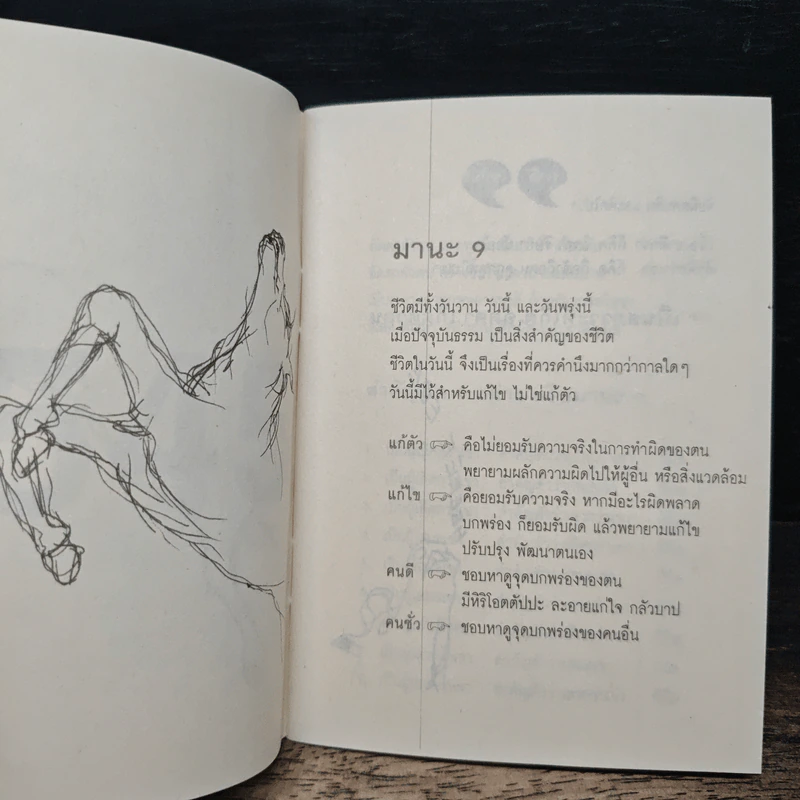 มานะ 9
ชีวิตมีทั้งวันวาน วันนี้ และวันพรุ่งนี้
เมื่อปัจจุบันธรรม เป็นสิ่งสำคัญของชีวิต
ชีวิตในวันนี้ จึงเป็นเรื่องที่ควรคำนึงมากกว่ากาลใดๆ
วันนี้มีไว้สำหรับแก้ไข ไม่ใช่แก้ตัว
แก้ตัว คือไม่ยอมรับความจริงในการทำผิดของตน
พยายามผลักความผิดไปให้ผู้อื่น หรือสิ่งแวดล้อม
แก้ไข คือยอมรับความจริง หากมีอะไรผิดพลาด
บกพร่อง ก็ยอมรับผิด แล้วพยายามแก้ไข
ปรับปรุง พัฒนาตนเอง
คนดี ชอบหาดูจุดบกพร่องของตน
มีหิริโอตตัปปะ ละอายแก่ใจ กลัวบาป
คนชั่ว ชอบหาดูจุดบกพร่องของคนอื่น